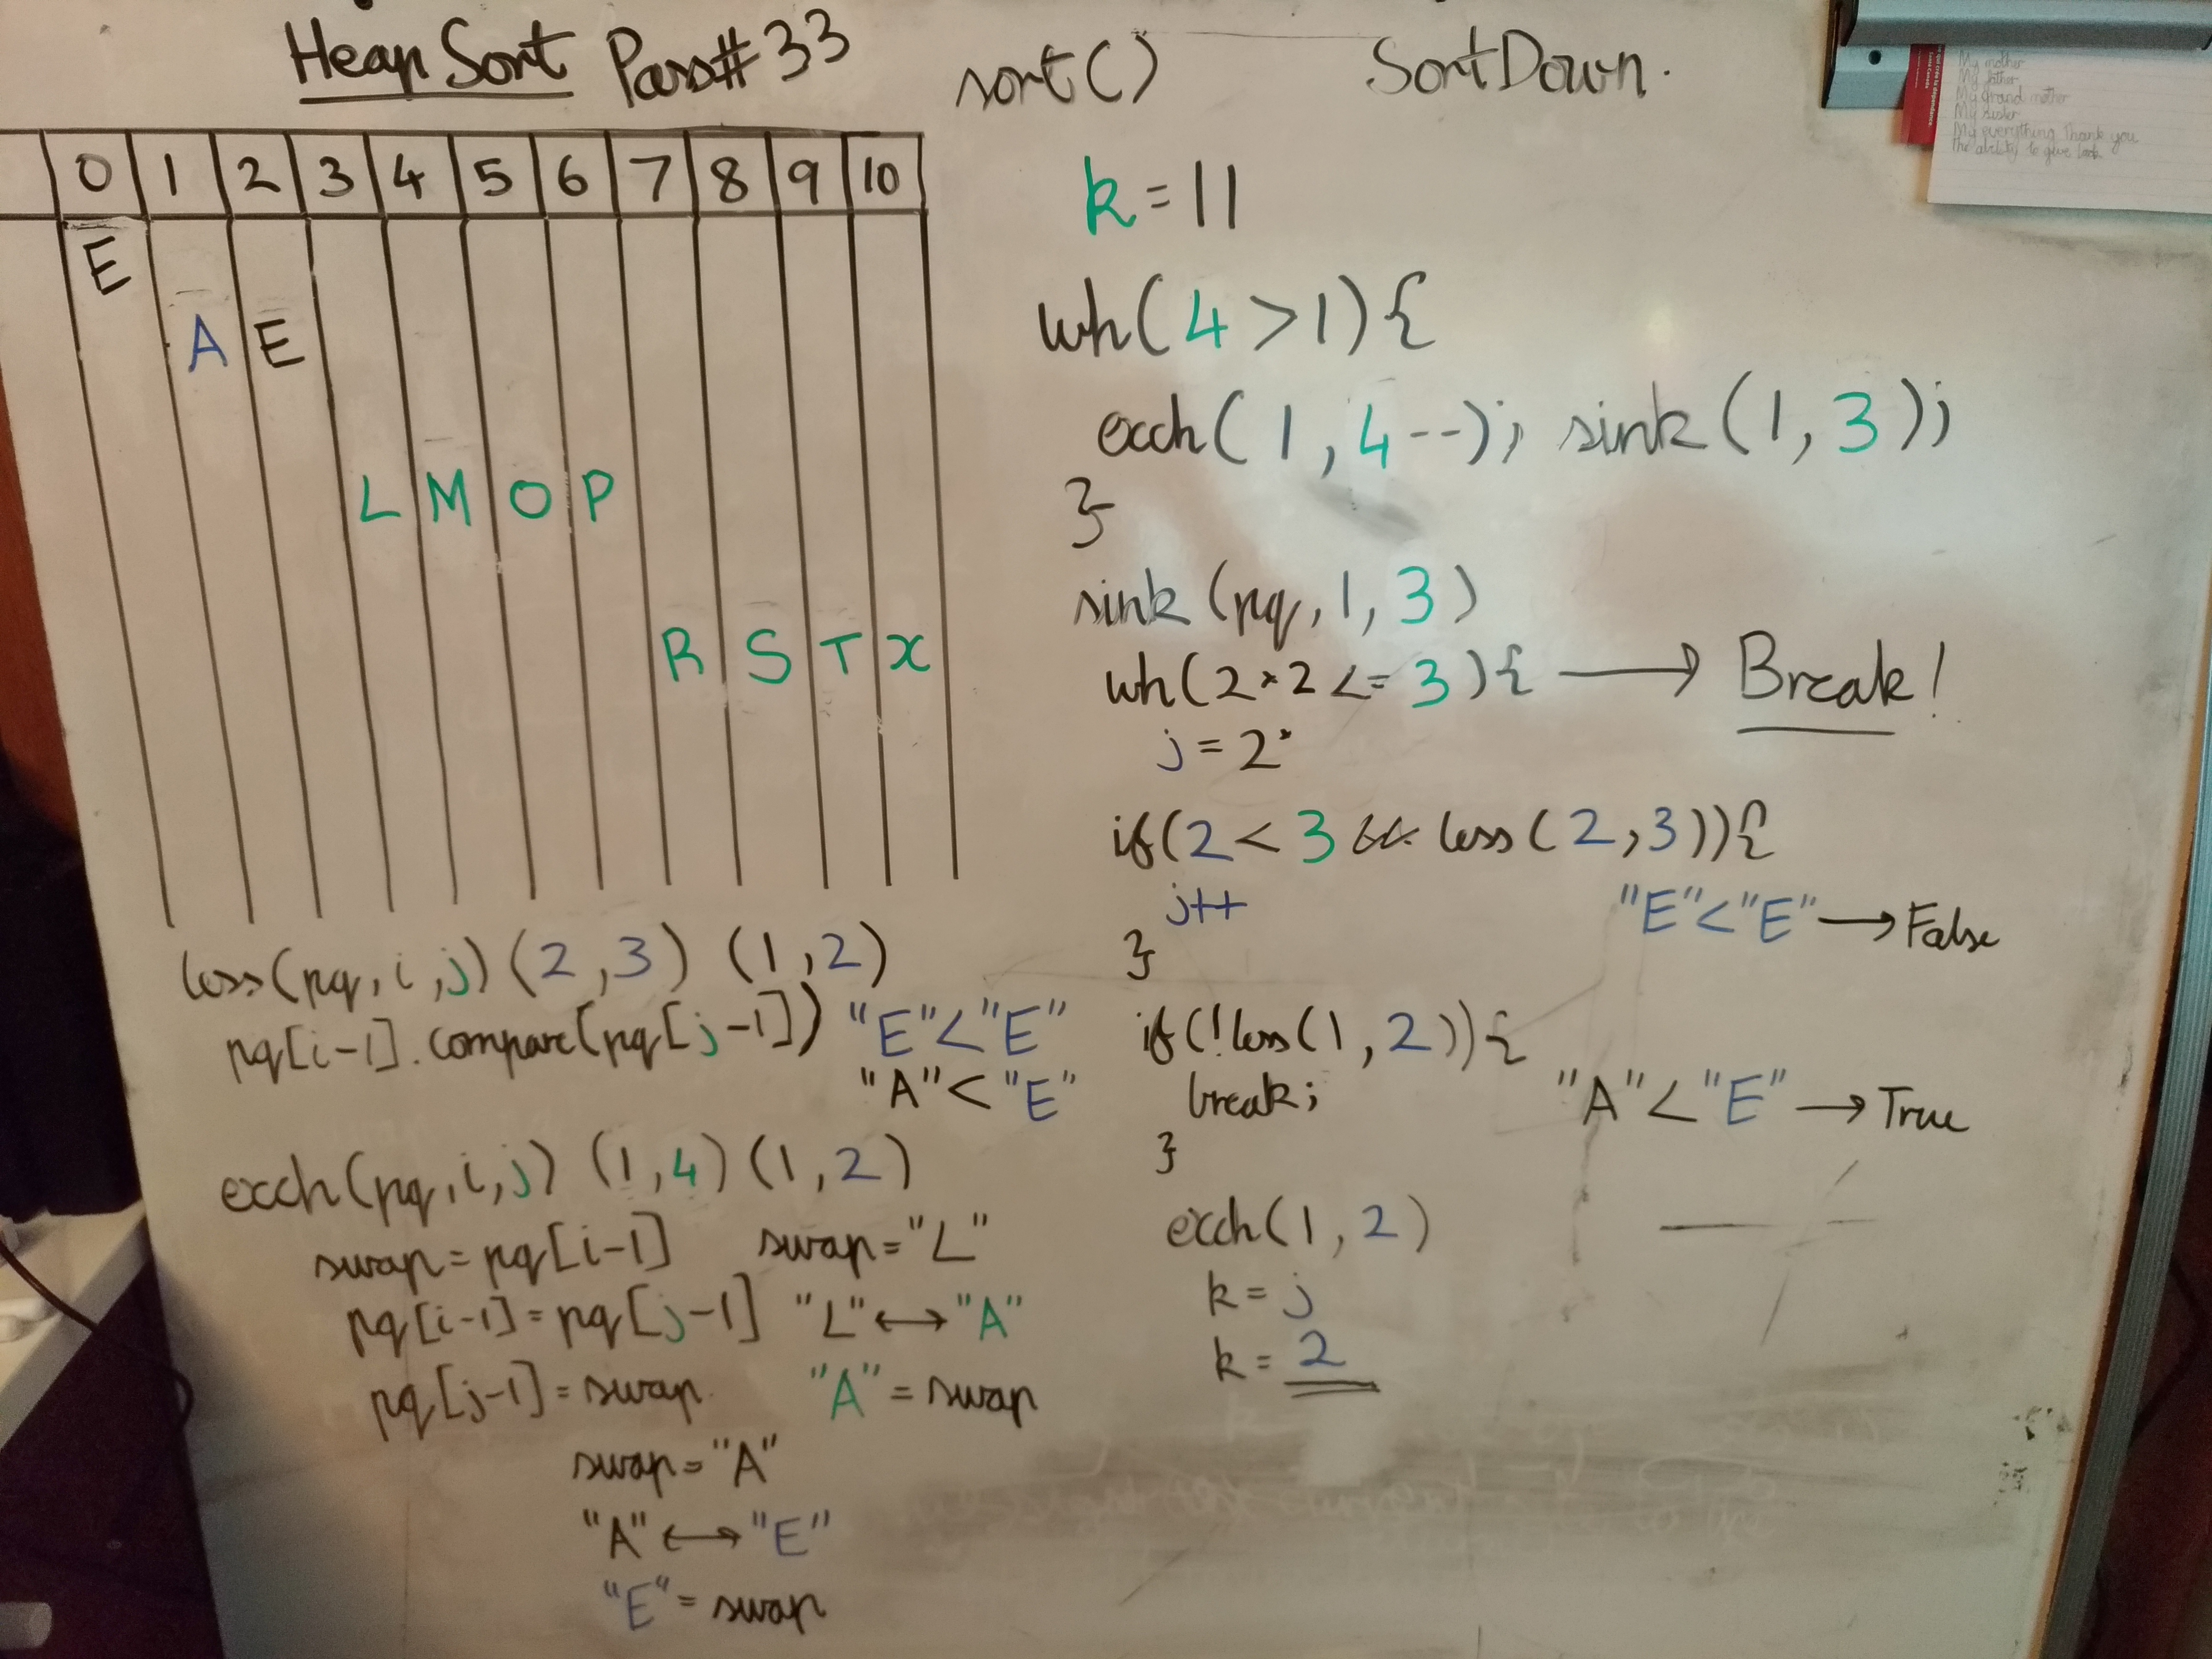 Heap Sort Pass#33 sort() SortDown.
0 1 2 3 4 5 6 7 8 9 10
E
A E
L M O P
R S T X
k = 11
wh(4 > 1){
exch(1, 4--); sink(1, 3);
}
sink(pq, 1, 3)
wh(2*2 <= 3){ → Break!
j = 2*
if(2 < 3 && less(2, 3)){
j++
"E"<"E" → False
}
if(!less(1, 2)){
break;
"A"<"E" → True
}
exch(1, 2)
k = j
k = 2
less(pq, i, j) (2, 3) (1, 2)
pq[i-1].compare(pq[j-1]) "E"<"E"
"A"<"E"
exch(pq, i, j) (1, 4) (1, 2)
swap = pq[i-1] swap = "L"
pq[i-1] = pq[j-1] "L" ↔ "A"
pq[j-1] = swap. "A" = swap
swap = "A"
"A" ↔ "E"
"E" = swap
My mother
My father
My Grand mother
My sister
My everything Thank you
the ability to give